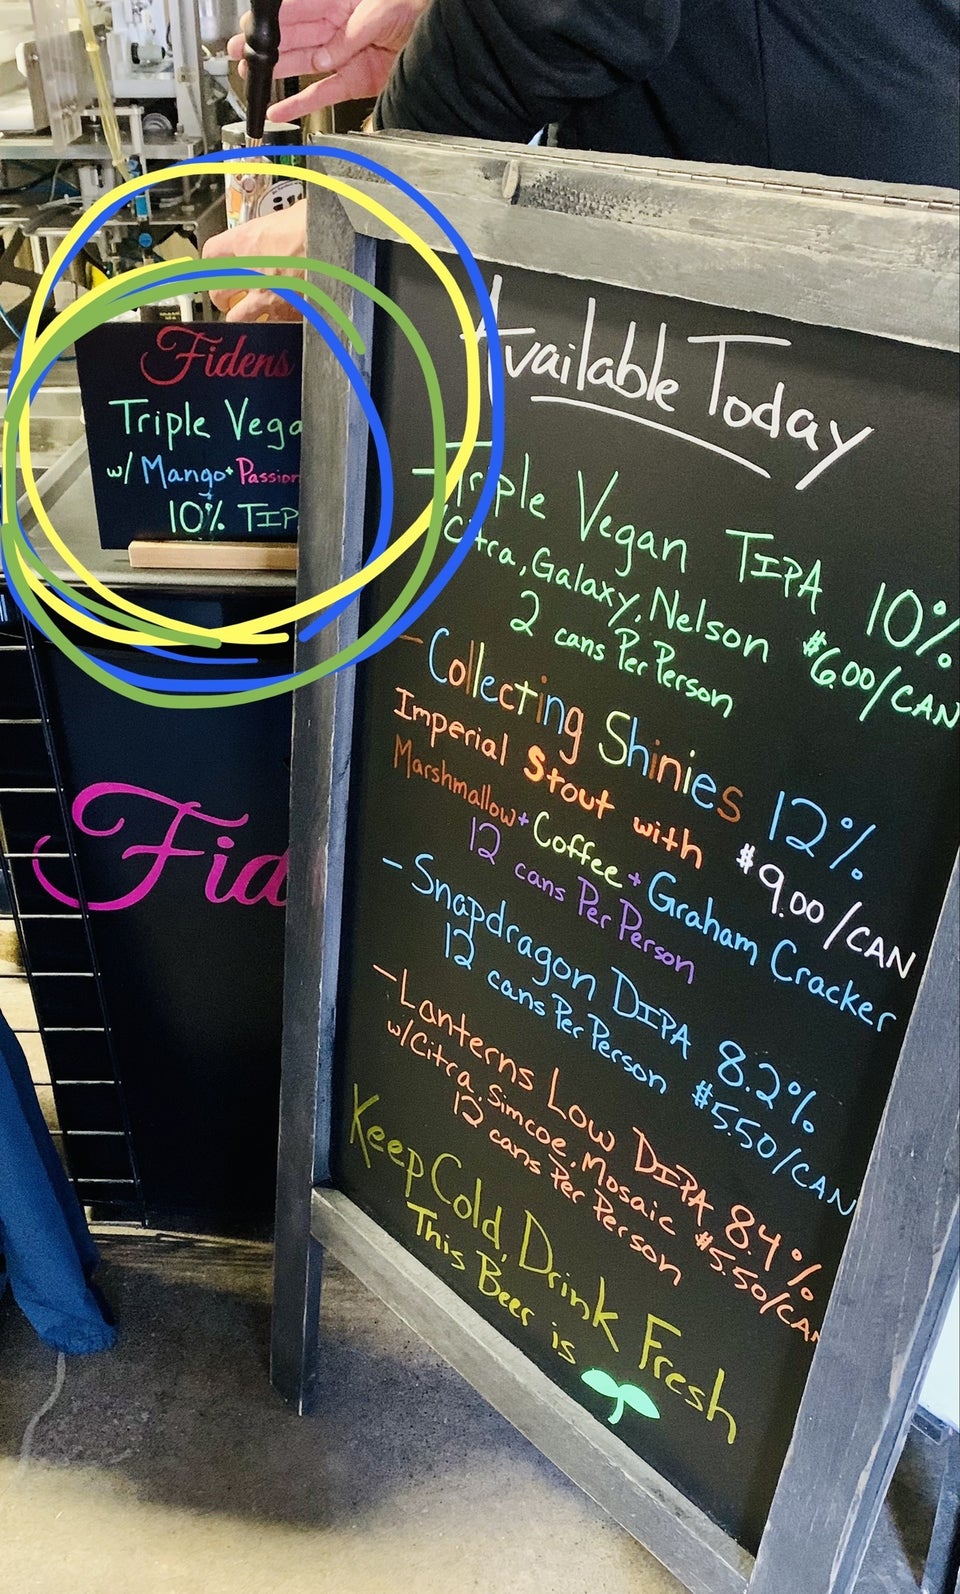 Fidens
Triple Vega
w/ Mango + Passion
10% TIP
Fid
Available Today
- Triple Vegan TIPA 10%
Citra, Galaxy, Nelson $6.00/CAN
2 cans Per Person
- Collecting Shinies 12%
Imperial Stout with $9.00/CAN
Marshmallow + Coffee + Graham Cracker
12 cans Per Person
- Snapdragon DIPA 8.2%
12 cans Per Person $5.50/CAN
- Lanterns Low DIPA 8.4%
w/Citra, Simcoe, Mosaic $5.50/CAN
12 cans Per Person
Keep Cold, Drink Fresh
This Beer is